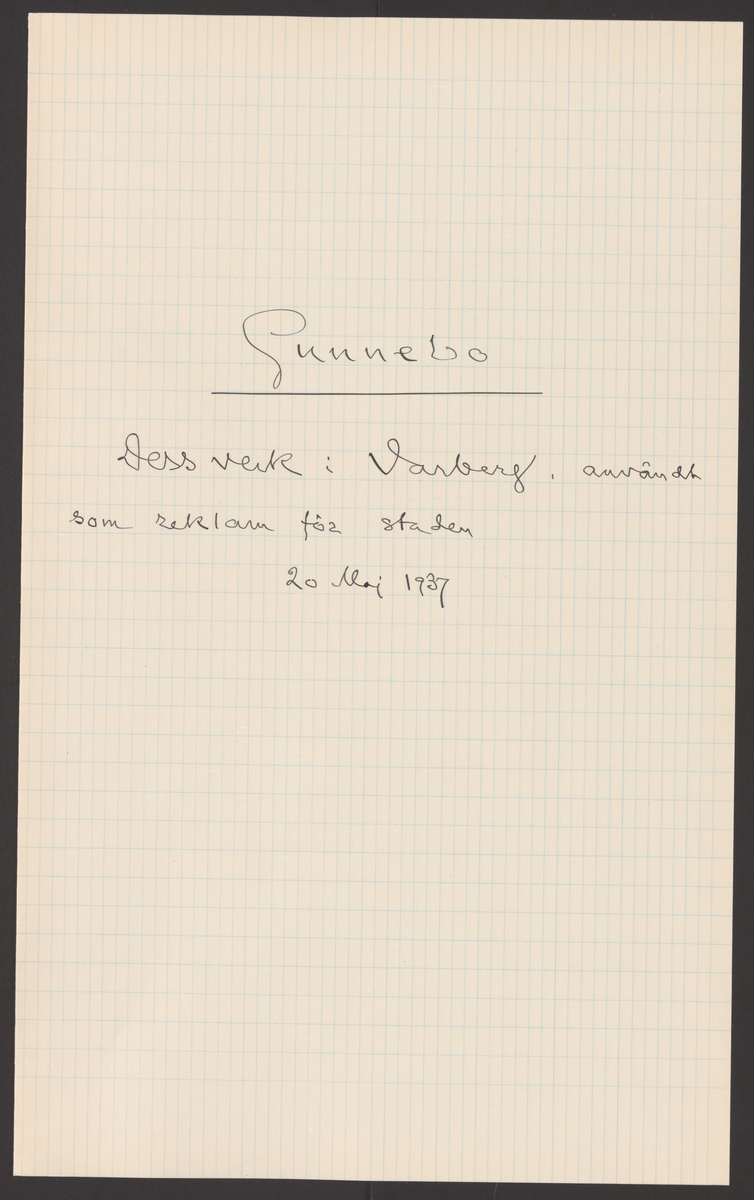 Gunnebo
Dess verk i Varberg, användt
som reklam för staden
20 Maj 1937